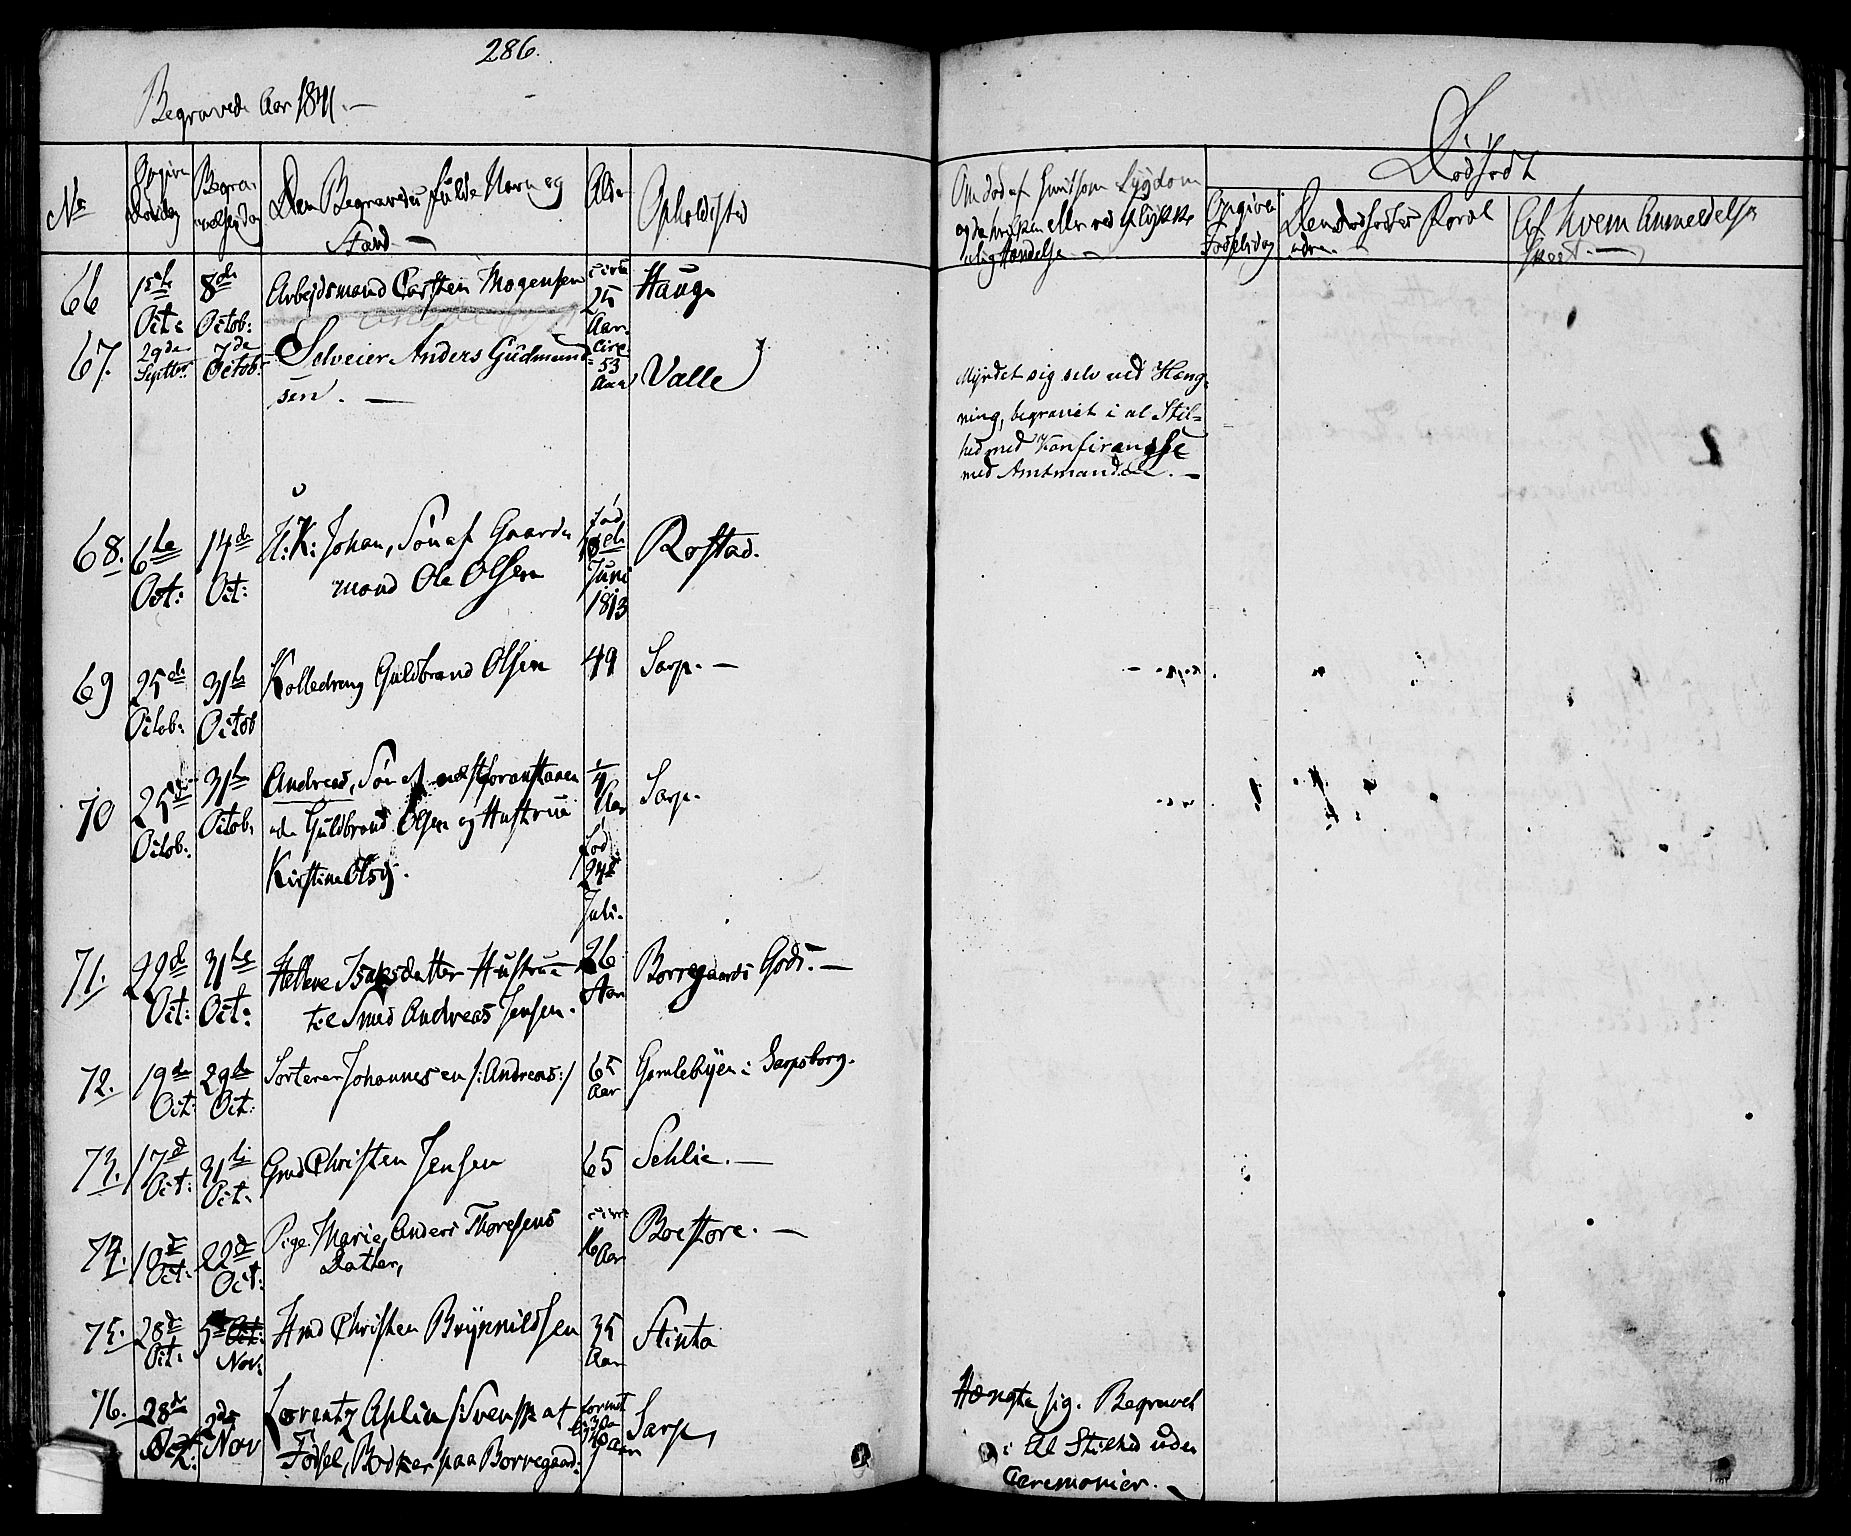 286.
Begravede Aar 1841.
No
Opgiven Dødsdag
Begravelsesdag
Den Begravedes fulde Navn og
Stand.
Alder
Opholdssted
Om død af Smitsom Sygdom
og da hvilken eller ved ulykke
lig Hændelse.
Dødfødt
Opgiven
Fødselsdag
Den Dødfødtes Foræl
dre.
Af hvem Anmeldelse
skeet.
66 1ste Oct: 8de Octob: Arbejdsmand Carsten Mogensen circa 25 Aar. Hauge
67. 29de Septbr. 7de Octob: Selveier Anders Gudmund
sen. circa 53 Aar Valle
Myrdet sig selv ved Hæng-
ning, begravet i al Stil-
hed med Conferance
med Amtmanden.
68. 6te Oct: 14de Oct: U: K: Johan, Søn af Gaard
mand Ole Olsen fød Juni 1813 Rostad.
69 25de Octob: 31te Octob Kulledreng Guldbrand Olsen 49 Sarp.
70 25de Octob: 31te Octob: Andreas, Søn af næstforanstaaen
de Guldbrand Olsen og Hustrue
Kirstine Olsdr. 1/4 Aar fød 24de Juli. Sarp.
71. 22de Oct: 31te Oct: Hellene Isaksdatter Hustrue
til Smed Andreas Jensen. 26 Aar Borregaards Gods.
72. 19de Oct: 29de Oct: Sorterer Johannesen /: Andreas :/ 65 Aar Gamlebyen i Sarpsborg.
73. 17de Oct: 31te Oct: Grd Christen Jensen 65 Sehlie.
74. 10de Oct: 22de Oct: Pige Marie, Anders Thoresens
Datter, circa 16 Aar Boestøre.
75. 28de Oct: 5te Oct: Nov: Hmd Christen Brynnildsen 35 Aar Stinta
76. 28de Oct: 2den Nov Lorentz Aplin /: Svensk af
Fødsel, Bødker paa Borregaard: Aar Sarp,
Hængte sig. Begravet
i Al Stilhed uden
Ceremonier.